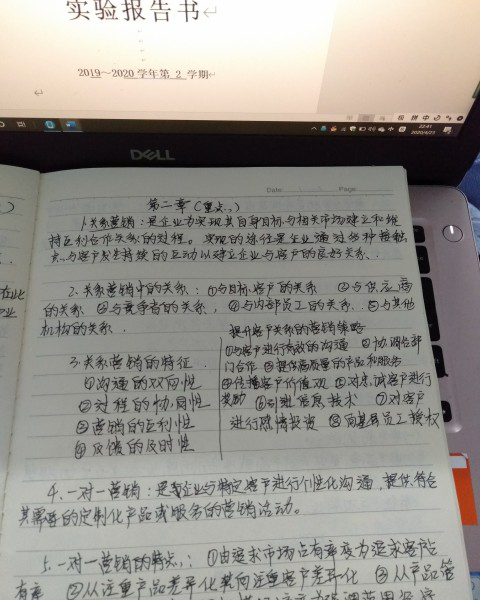 实验报告书
2019～2020 学年第 2 学期
22:41
2020/4/23
DELL
Date: Page
第二章(重点、)
1.关系营销:是企业为实现其自身目标与相关市场建立和维
持互利合作关系的过程。实现的途径是企业通过多种接触
点、与客户发生持续的互动以建立企业与客户的良好关系、
2.关系营销中的关系:①与目标客户的关系 ②与供应商
的关系 ③与竞争者的关系、④与内部员工的关系、⑤与其他
机构的关系、
3.关系营销的特征、
①沟通的双向性
②过程的协同性
③营销的互利性
④反馈的及时性
提升客户关系的营销策略
①与客户进行有效的沟通 ②协调各部
门合作 ③提供高质量的产品和服务
④传播客户价值观 ⑤对忠诚客户进行
奖励 ⑥引进信息技术 ⑦对客户
进行感情投资 ⑧向基层员工授权
4.一对一营销:是企业与特定客户进行个性化沟通,提供符合
其需要的定制化产品或服务的营销活动。
5.一对一营销的特点:①由追求市场占有率变为追求客户占
有率 ②从注重产品差异化转向注重客户差异化 ③从产品管